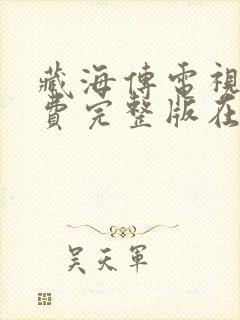 藏海傳電視
費完整版在
吴天軍